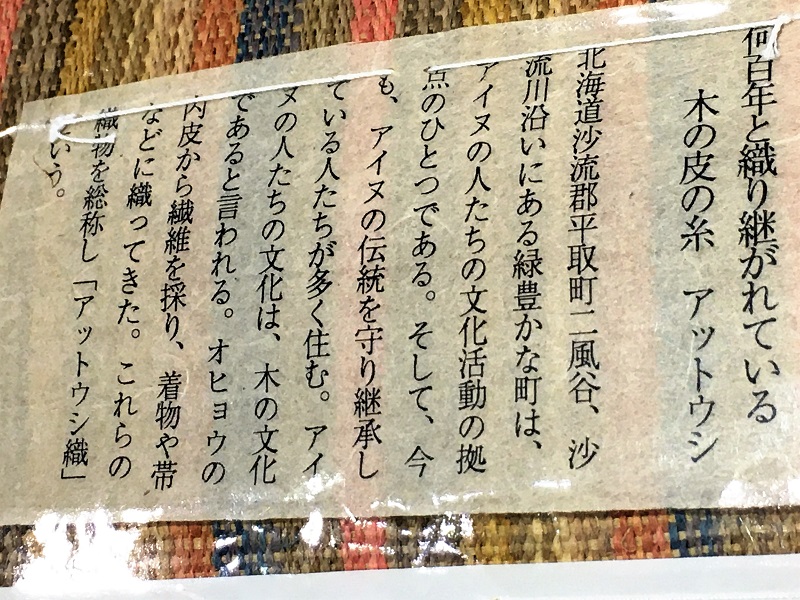 何百年と織り継がれている
木の皮の糸 アットウシ
北海道沙流郡平取町二風谷、沙
流川沿いにある緑豊かな町は、
アイヌの人たちの文化活動の拠
点のひとつである。そして、今
も、アイヌの伝統を守り継承し
ている人たちが多く住む。アイ
ヌの人たちの文化は、木の文化
であると言われる。オヒョウの
内皮から繊維を採り、着物や帯
などに織ってきた。これらの
織物を総称し「アットウシ織」
という。